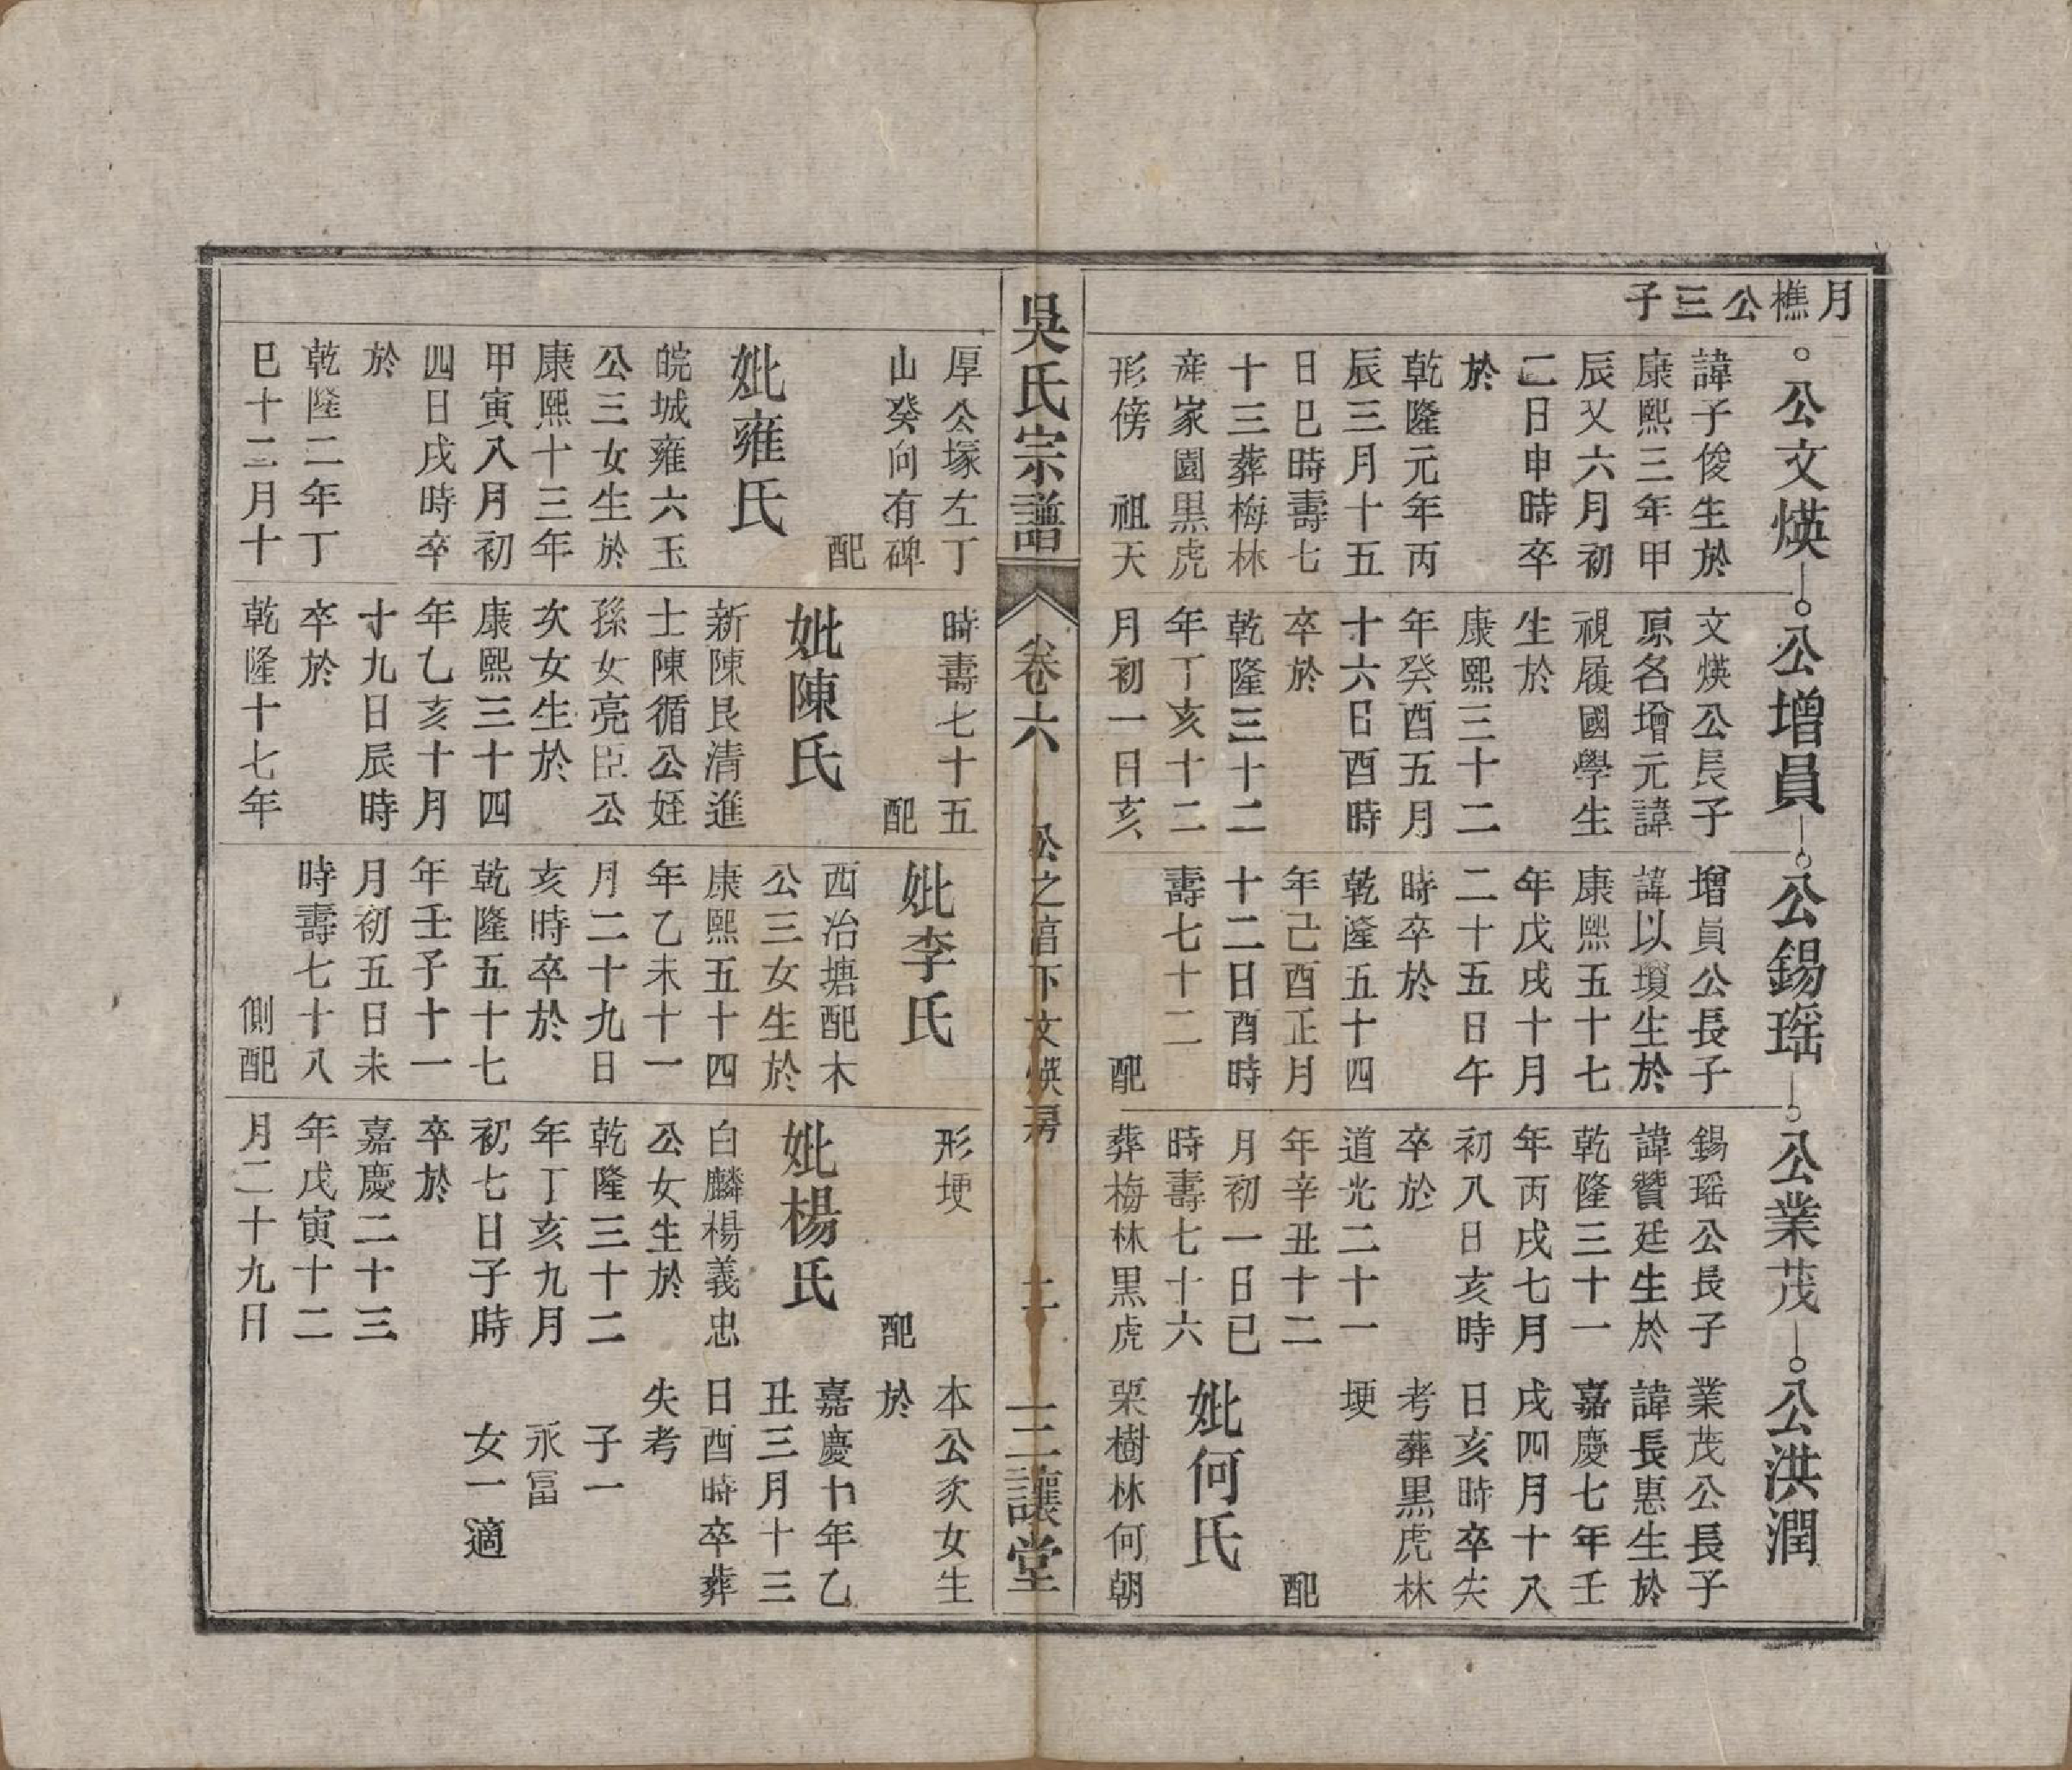 月樵公三子
公文煐
諱子俊生於
康熙三年甲
辰又六月初
二日申時卒
於
乾隆元年丙
辰三月十五
日巳時壽七
十三葬梅林
産家園黒虎
形傍　祖天
公增員
文煐公長子
原名增元諱
視履國學生
生於
康熙三十二
年癸酉五月
十六日酉時
卒於
乾隆三十二
年丁亥十二
月初一日亥
公錫瑶
增員公長子
諱以瓊生於
康熙五十七
年戊戌十月
二十五日午
時卒於
乾隆五十四
年己酉正月
十二日酉時
壽七十二
配
公業茂
錫瑶公長子
諱贊廷生於
乾隆三十一
年丙戌七月
初八日亥時
卒於
道光二十一
年辛丑十二
月初一日巳
時壽七十六
葬梅林黒虎
公洪潤
業茂公長子
諱長惠生於
嘉慶七年壬
戌四月十八
日亥時卒失
考葬黒虎林
埂
配
妣何氏
栗樹林何朝
吳氏宗譜
卷六
公之 下文煐房
三讓堂
厚公塚左丁
山癸向有碑
配
妣雍氏
皖城雍六玉
公三女生於
康熙十三年
甲寅八月初
四日戌時卒
於
乾隆二年丁
巳十二月十
時壽七十五
配
妣陳氏
新陳艮清進
士陳循公姪
孫女亮臣公
次女生於
康熙三十四
年乙亥十月
十九日辰時
卒於
乾隆十七年
妣李氏
西冶塘配木
公三女生於
康熙五十四
年乙未十一
月二十九日
亥時卒於
乾隆五十七
年壬子十一
月初五日未
時壽七十八
側配
形埂
配
妣楊氏
白麟楊義忠
公女生於
乾隆三十二
年丁亥九月
初七日子時
卒於
嘉慶二十三
年戊寅十二
月二十九日
本公次女生
於
嘉慶十年乙
丑三月十三
日酉時卒葬
失考
子一
永富
女一適